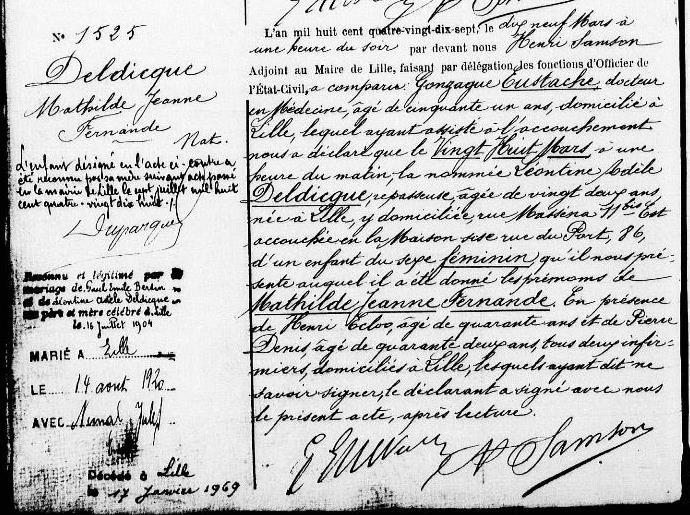 N° 1525
Deldicque
Mathilde Jeanne
Fernande
Nat.
L'enfant désigné en l'acte ci-contre a
été reconnu par sa mère suivant acte passé
en la mairie de Lille le sept juillet mil huit
cent quatre-vingt dix huit.
Reconnu et légitimé par le
mariage de Paul Emile Bertin
et de Léontine Adèle Deldicque
ses père et mère célébré à Lille
le 16 Juillet 1904
MARIÉ A Lille
LE 14 août 1920
AVEC
Décédé à Lille
le 17 Janvier 1969
L'an mil huit cent quatre-vingt-dix-sept, le dix neuf Mars à
une heure du soir par devant nous Henri Samson
Adjoint au Maire de Lille, faisant par délégation les fonctions d'Officier de
l'État-Civil, a comparu Gonzague Eustache, docteur
en Médecine, âgé de cinquante un ans, domicilié à
Lille, lequel ayant assisté à l'accouchement
nous a déclaré que le Vingt Huit Mars à une
heure du matin, la nommée Léontine Adèle
Deldicque, repasseuse, âgée de vingt deux ans
née à Lille, y domiciliée, rue Masséna 77 bis Est
accouchée en la Maison sise rue du Port, 86,
d'un enfant du sexe féminin qu'il nous pré-
sente auquel il a été donné les prénoms de
Mathilde Jeanne Fernande. En présence
de Henri, âgé de quarante ans et de Pierre
Denis, âgé de quarante deux ans, tous deux infir-
miers, domiciliés à Lille, lesquels ayant dit ne
savoir signer, le déclarant a signé avec nous
le présent acte, après lecture.
Samson